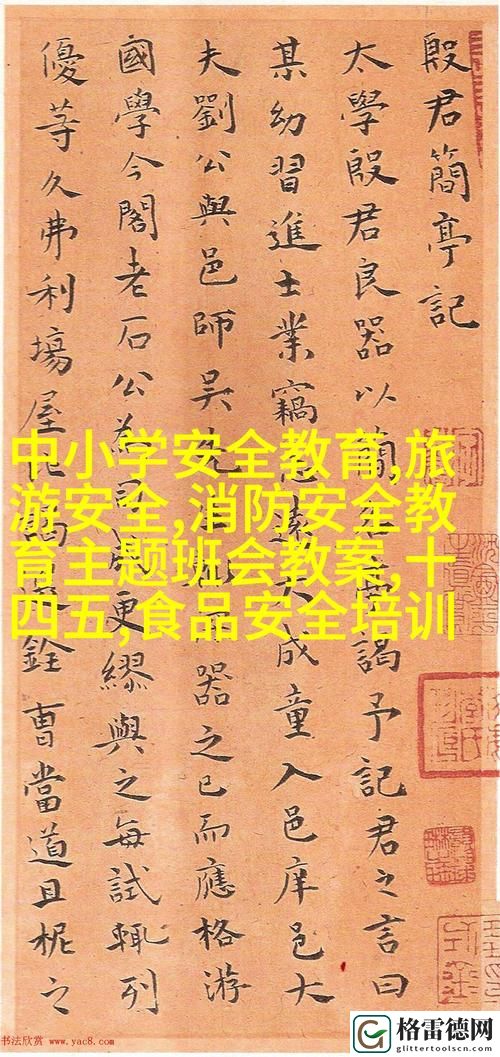 殷君簡亭記
太學殷君良器以簡謁予記君之言曰
某幼習進士業竊遠大成童入邑庠邑大
夫劉公與邑師吳先器之已而應格游
國學今閣老石公為司成更繆與之每試輒列
優等久弗利場屋銓曹當道且柅之
中小学安全教育,旅
游安全,消防安全教
育主题班会教案,十
四五,食品安全培训
书法欣赏 www.yac8.com
格雷德网
glittertoolscn.com